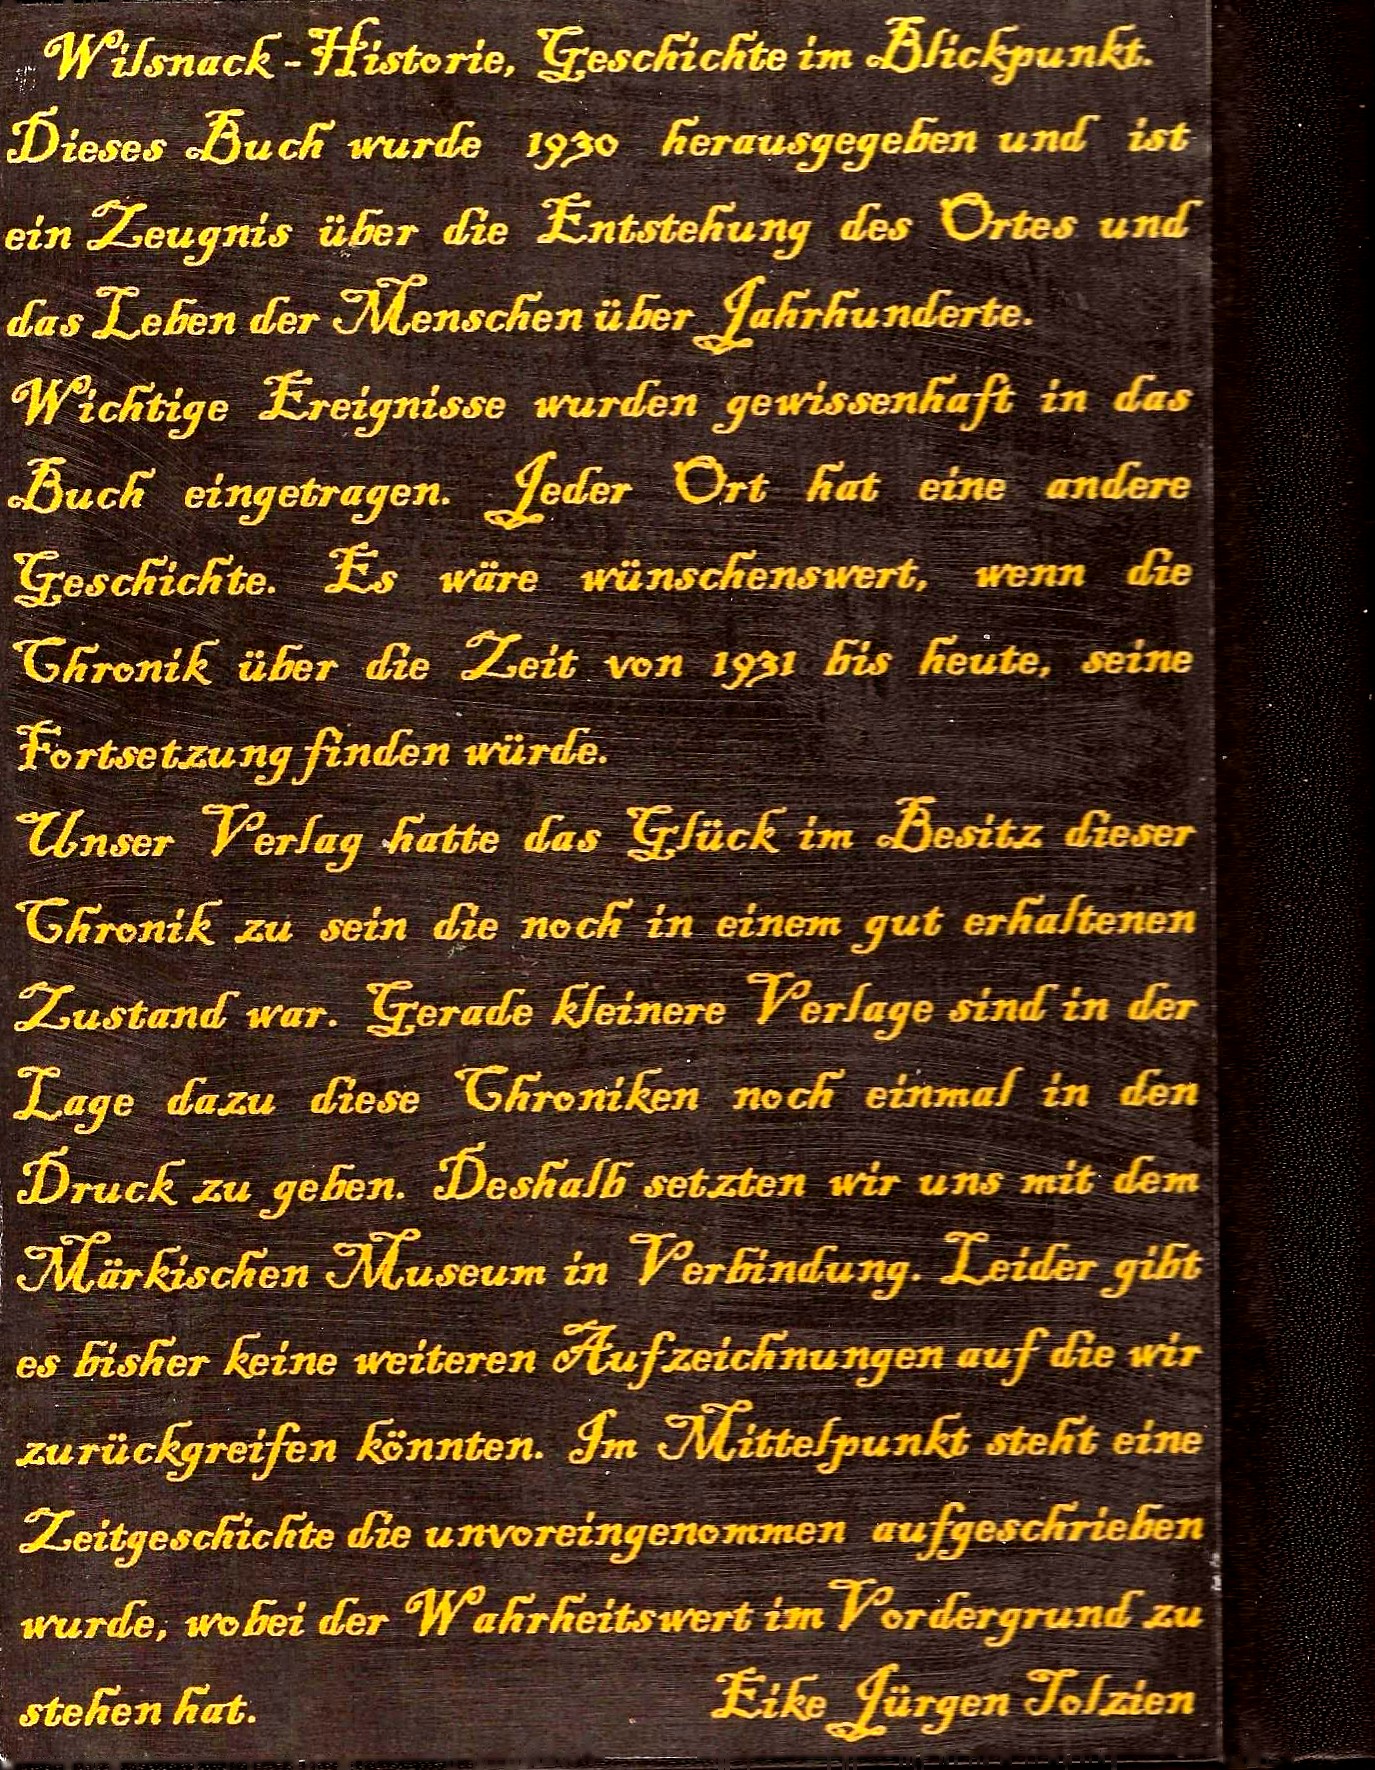 Wilsnack - Historie, Geschichte im Blickpunkt.
Dieses Buch wurde 1930 herausgegeben und ist
ein Zeugnis über die Entstehung des Ortes und
das Leben der Menschen über Jahrhunderte.
Wichtige Ereignisse wurden gewissenhaft in das
Buch eingetragen. Jeder Ort hat eine andere
Geschichte. Es wäre wünschenswert, wenn die
Chronik über die Zeit von 1931 bis heute, seine
Fortsetzung finden würde.
Unser Verlag hatte das Glück im Besitz dieser
Chronik zu sein die noch in einem gut erhaltenen
Zustand war. Gerade kleinere Verlage sind in der
Lage dazu diese Chroniken noch einmal in den
Druck zu geben. Deshalb setzten wir uns mit dem
Märkischen Museum in Verbindung. Leider gibt
es bisher keine weiteren Aufzeichnungen auf die wir
zurückgreifen könnten. Im Mittelpunkt steht eine
Zeitgeschichte die unvoreingenommen aufgeschrieben
wurde, wobei der Wahrheitswert im Vordergrund zu
stehen hat. Eike Jürgen Tolzien